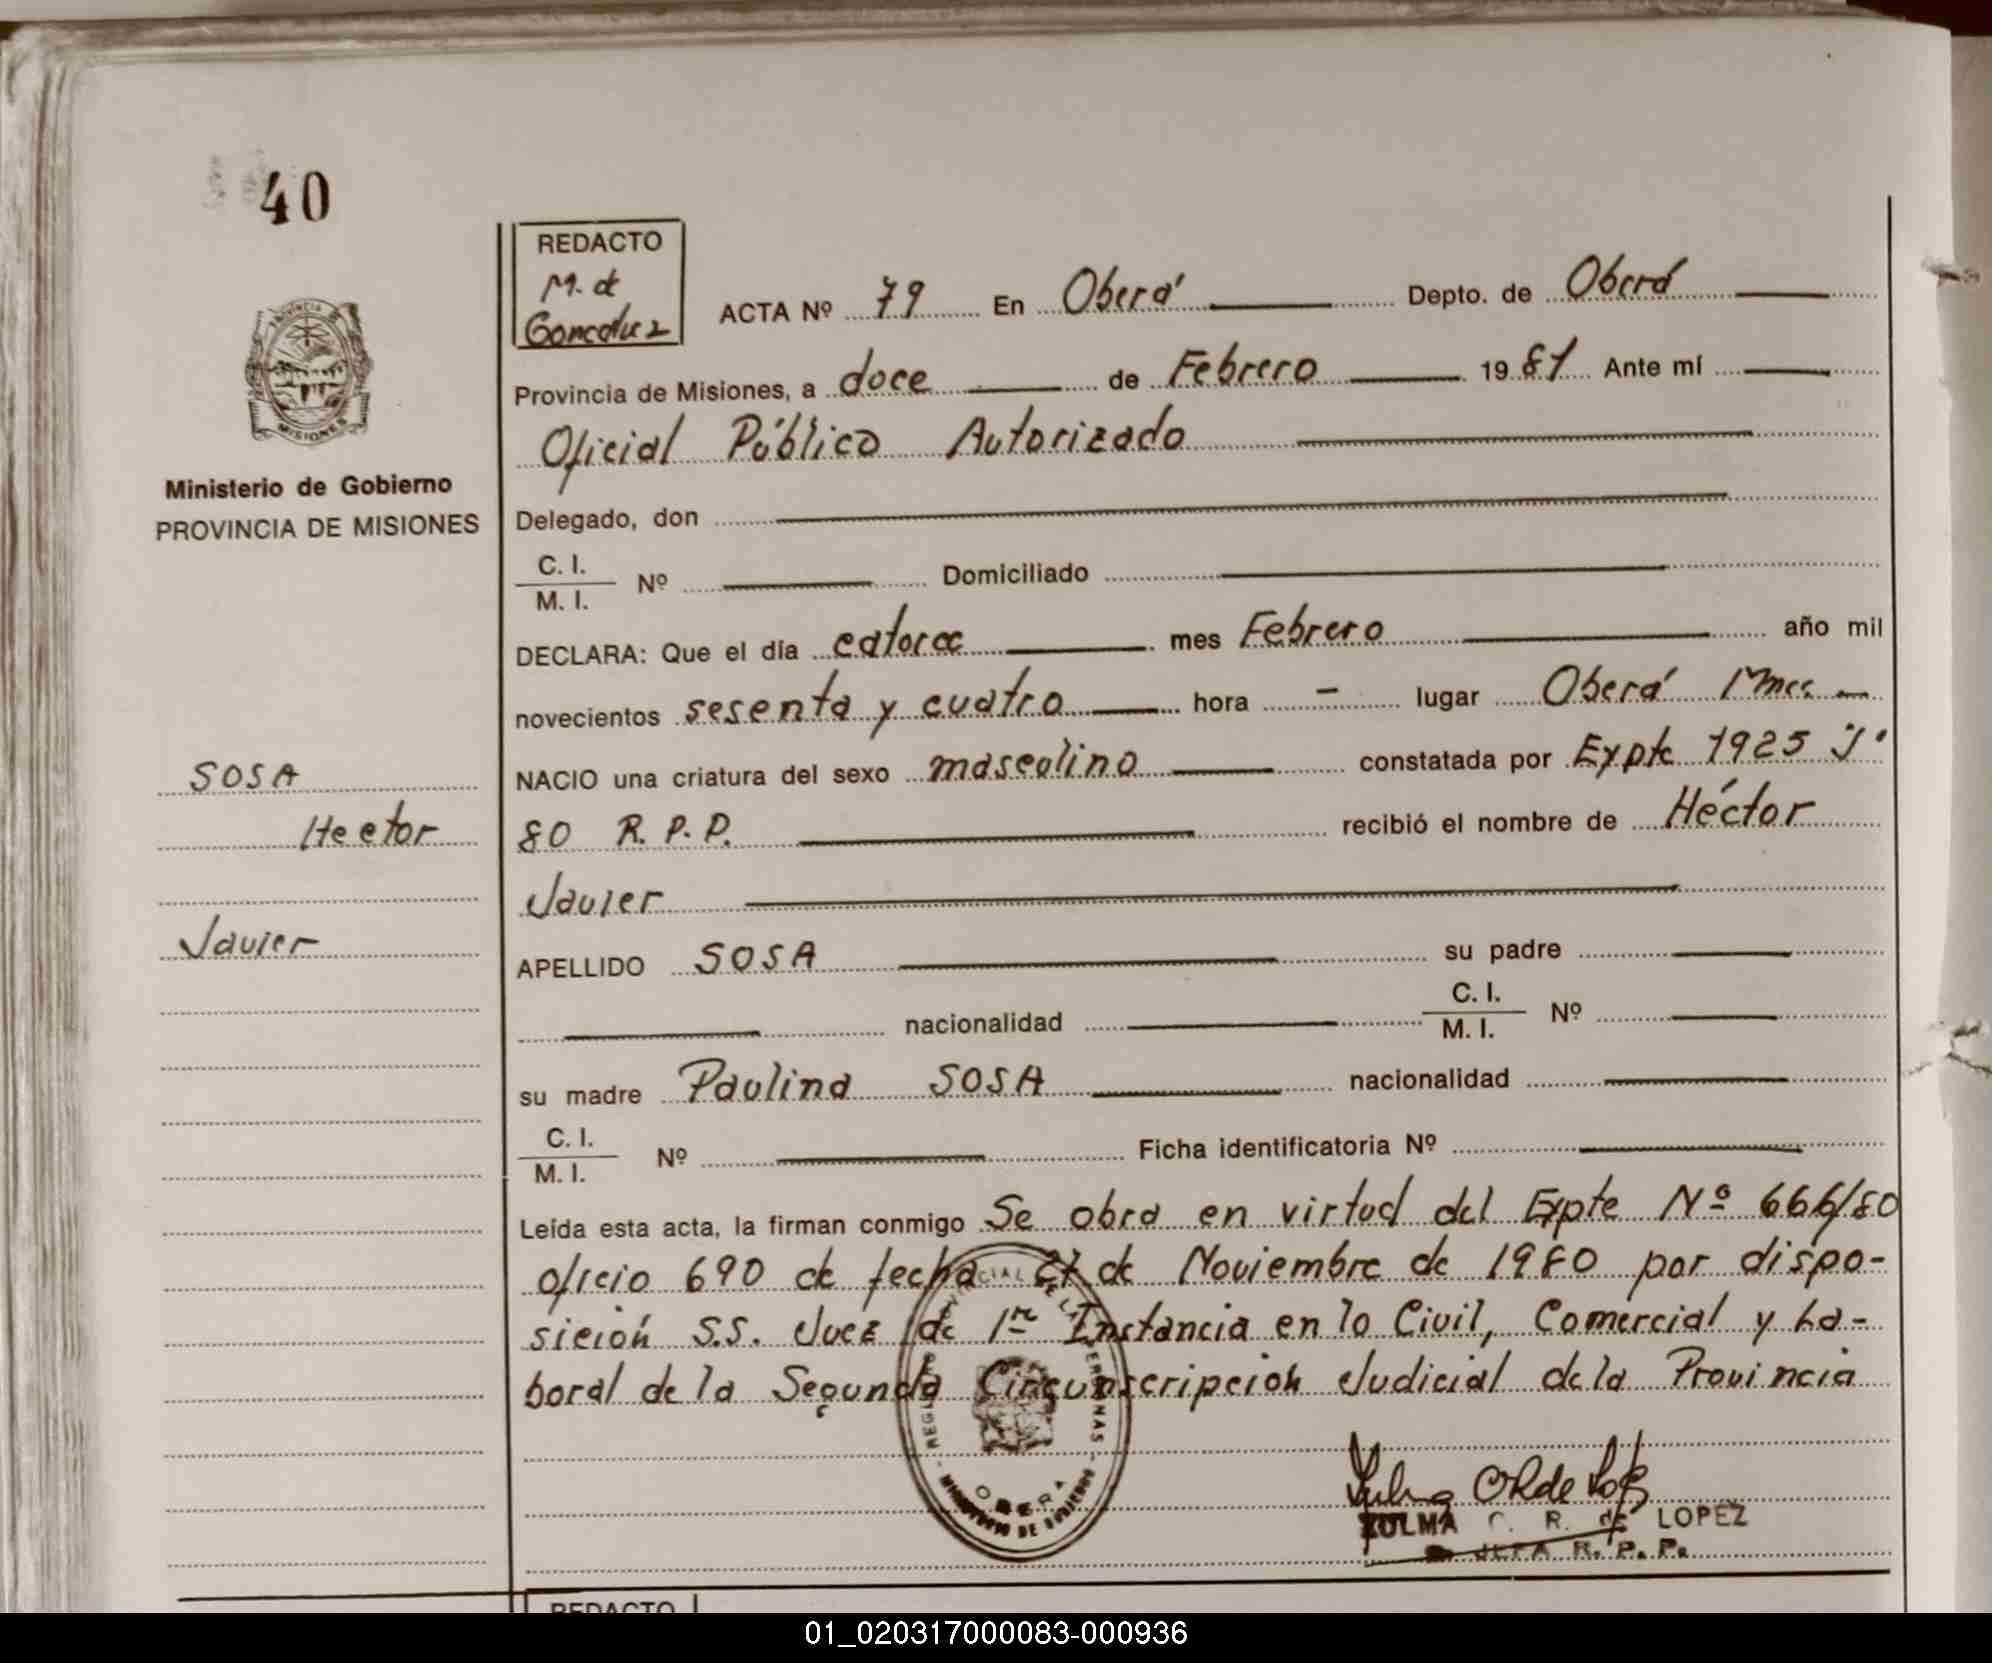 40
REDACTO
M. de
Gonzalez
ACTA Nº 79 En Oberá Depto. de Oberá
Provincia de Misiones, a doce de Febrero 1981 Ante mí
Oficial Público Autorizado
PROVINCIA DE
MISIONES
Ministerio de Gobierno
PROVINCIA DE MISIONES
Delegado, don
C. I.
M. I. Nº Domiciliado
DECLARA: Que el día catorce mes Febrero año mil
novecientos sesenta y cuatro hora - lugar Oberá Mnes
NACIO una criatura del sexo masculino constatada por Expte 1925 J'
80 R. P. P. recibió el nombre de Héctor
Javier
APELLIDO SOSA su padre
nacionalidad C. I.
M. I. Nº
su madre Paulina SOSA nacionalidad
C. I.
M. I. Nº Ficha identificatoria Nº
SOSA
Hector
Javier
Leída esta acta, la firman conmigo Se obra en virtud del Expte Nº 666/80
oficio 690 de fecha 27 de Noviembre de 1980 por dispo-
sición S.S. Juez de 1ra Instancia en lo Civil, Comercial y La-
boral de la Segunda Circunscripción Judicial de la Provincia
DE LAS PERSONAS
OBERA
MINISTERIO DE GOBIERNO
ZULMA C. R. de LOPEZ
JEFA R. P. P.
REDACTO
01_020317000083-000936